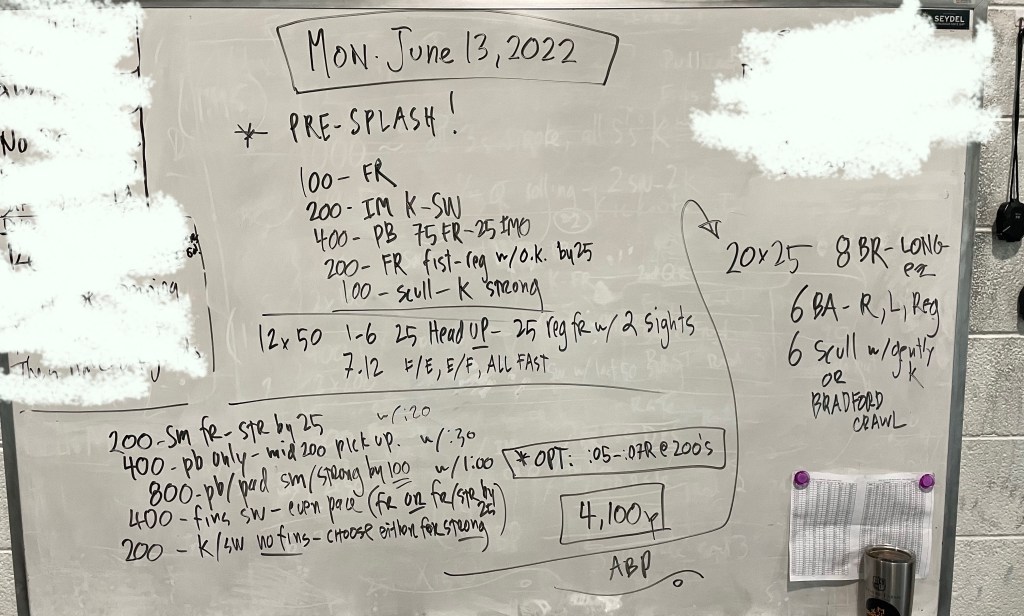 SEYDEL
MON. June 13, 2022
No
* PRE-SPLASH!
100 - FR
200 - IM K-SW
400 - PB 75 FR-25 IMO
200 - FR fist-reg w/O.K. by 25
100 - scull - K strong
12 x 50 1-6 25 Head UP - 25 reg fr w/ 2 sights
7-12 E/E, E/F, ALL FAST
200 - sm fr - str by 25 w/:20
400 - pb only - mid 200 pick up. w/:30
800 - pb/pad sm/strong by 100 w/1:00
400 - fins sw - even pace (FR OR fr/str by 25)
200 - K/SW no fins - choose either for strong
* OPT: :05-:07R @ 200's
4,100y
ABP
20x25 8 BR - LONG
ez
6 BA - R, L, Reg
6 Scull w/gently K
OR
BRADFORD
CRAWL